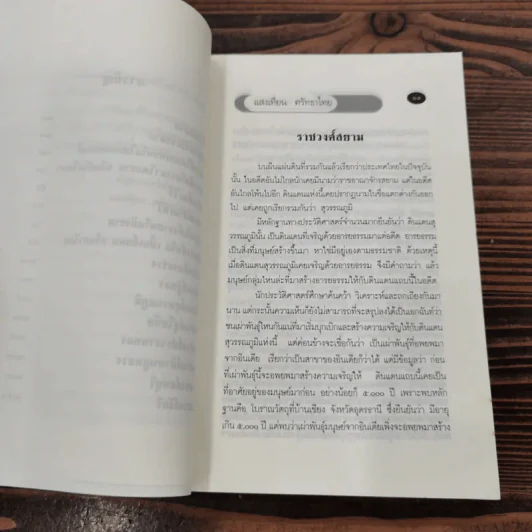 แสงเทียน ศรัทธาไทย
ราชวงศ์สยาม
บนผืนแผ่นดินที่รวมกันแล้วเรียกว่าประเทศไทยในปัจจุบัน
นั้น ในอดีตอันไม่ไกลนักเคยมีนามว่าราชอาณาจักรสยาม แต่ในอดีต
อันไกลโพ้นไปอีก ดินแดนแห่งนี้เคยปรากฏนามในชื่อแตกต่างกันออก
ไป แต่เคยถูกเรียกรวมกันว่า สุวรรณภูมิ
มีหลักฐานทางประวัติศาสตร์จำนวนมากยืนยันว่า ดินแดน
สุวรรณภูมินั้น เป็นดินแดนที่เจริญด้วยอารยธรรมมาแต่อดีต อารยธรรม
เป็นสิ่งที่มนุษย์สร้างขึ้นมา หาใช่มีอยู่เองตามธรรมชาติ ด้วยเหตุนี้
เมื่อดินแดนสุวรรณภูมิเคยเจริญด้วยอารยธรรม จึงมีคำถามว่า แล้ว
มนุษย์กลุ่มไหนล่ะที่มาสร้างอารยธรรมให้กับดินแดนแถบนี้ในอดีต
นักประวัติศาสตร์ศึกษาค้นคว้า วิเคราะห์และถกเถียงกันมา
นาน แต่กระนั้นความเห็นก็ยังไม่สามารถที่จะสรุปลงได้เป็นเอกฉันท์ว่า
ชนเผ่าพันธุ์ไหนกันแน่ที่มาเริ่มบุกเบิกและสร้างความเจริญให้กับดินแดน
สุวรรณภูมิแห่งนี้ แต่ค่อนข้างจะเชื่อกันว่า เป็นเผ่าพันธุ์ที่อพยพมา
จากอินเดีย เรียกว่าเป็นสาขาของอินเดียก็ว่าได้ แต่มีข้อมูลว่า ก่อน
ที่เผ่าพันธุ์นี้จะอพยพมาสร้างความเจริญให้ ดินแดนแถบนี้เคยเป็น
ที่อาศัยอยู่ของมนุษย์มาก่อน อย่างน้อยก็ ๕,๐๐๐ ปี เพราะพบหลัก
ฐานคือ โบราณวัตถุที่บ้านเชียง จังหวัดอุดรธานี ซึ่งยืนยันว่า มีอายุ
เกิน ๕,๐๐๐ ปี แต่พบว่าเผ่าพันธุ์มนุษย์จากอินเดียเพิ่งจะอพยพมาสร้าง